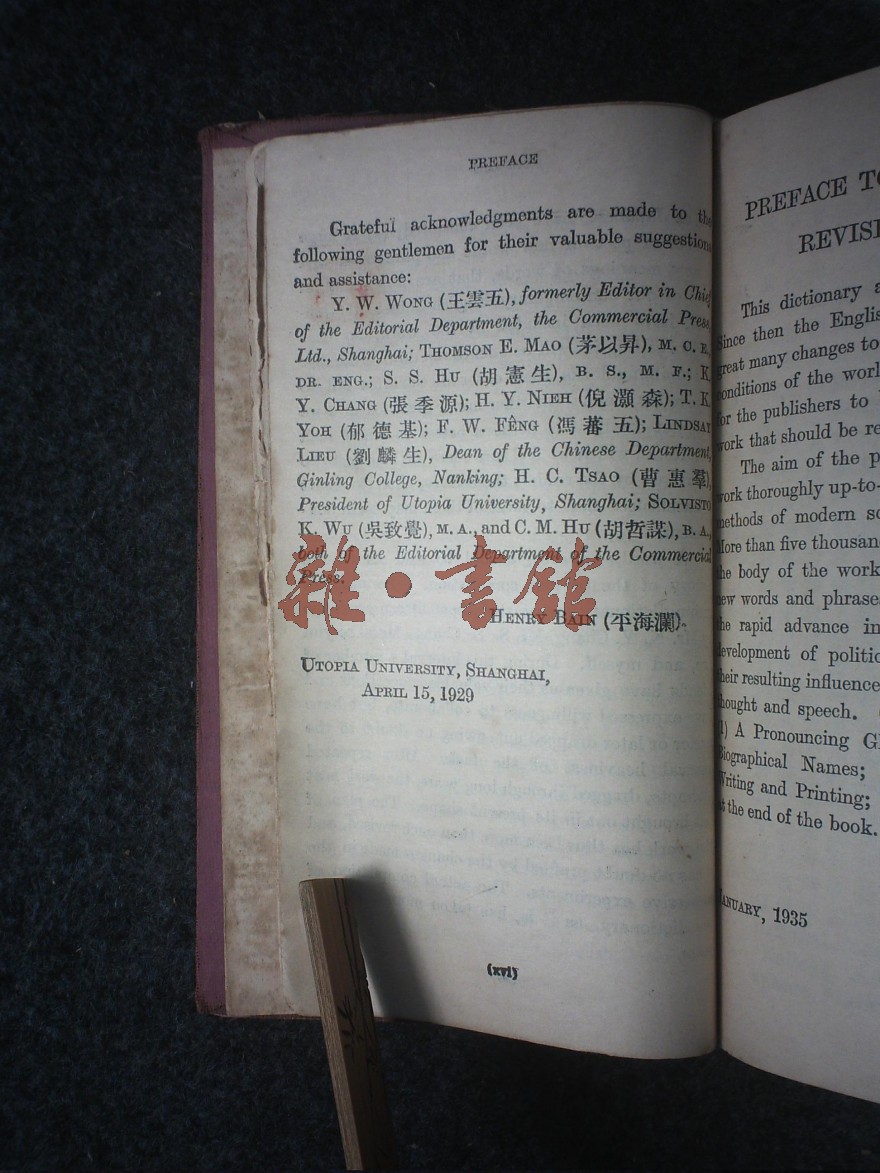 PREFACE
Grateful acknowledgments are made to the
following gentlemen for their valuable suggestions
and assistance:
Y. W. WONG (王雲五), formerly Editor in Chief
of the Editorial Department, the Commercial Press,
Ltd., Shanghai; THOMSON E. MAO (茅以昇), M. C. E.,
DR. ENG.; S. S. HU (胡憲生), B. S., M. F.; K.
Y. CHANG (張季源); H. Y. NIEH (倪灝森); T. K.
YOH (郁德基); F. W. FÊNG (馮蕃五); LINDSAY
LIEU (劉麟生), Dean of the Chinese Department,
Ginling College, Nanking; H. C. TSAO (曹惠羣),
President of Utopia University, Shanghai; SOLVISTO
K. WU (吳致覺), M. A., and C. M. HU (胡哲謀), B. A.,
both of the Editorial Department of the Commercial
Press.
雜·書館
HENRY BAIN (平海瀾).
UTOPIA UNIVERSITY, SHANGHAI,
APRIL 15, 1929
(xvi)
PREFACE
REVIS
This dictionary
Since then the English
great many changes to
conditions of the
for the publishers to
work that should be
The aim of the
work thoroughly
methods of modern
More than five
the body of the work
new words and phrases
the rapid advance in
development of
their resulting influence
thought and speech.
) A Pronouncing
Biographical Names;
Writing and Printing;
at the end of the book.
JANUARY, 1935